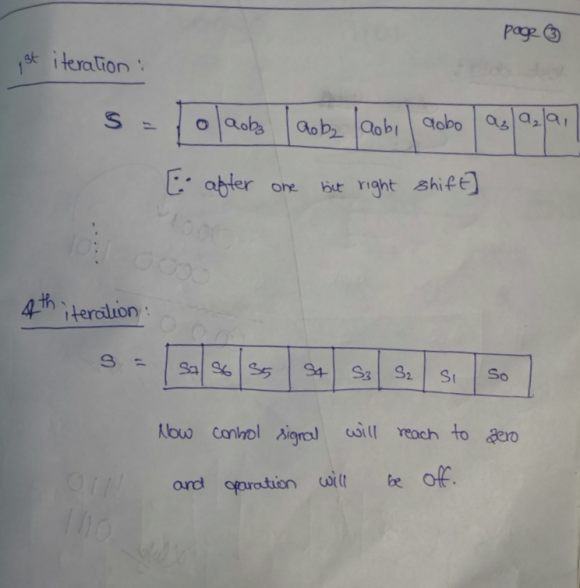 page ③
1st iteration:
S = 0 a0b3 a0b2 a0b1 a0b0 a3 a2 a1
[∵ after one bit right shift]
4th iteration:
S = S7 S6 S5 S4 S3 S2 S1 S0
Now control signal will reach to zero
and oparation will be off.